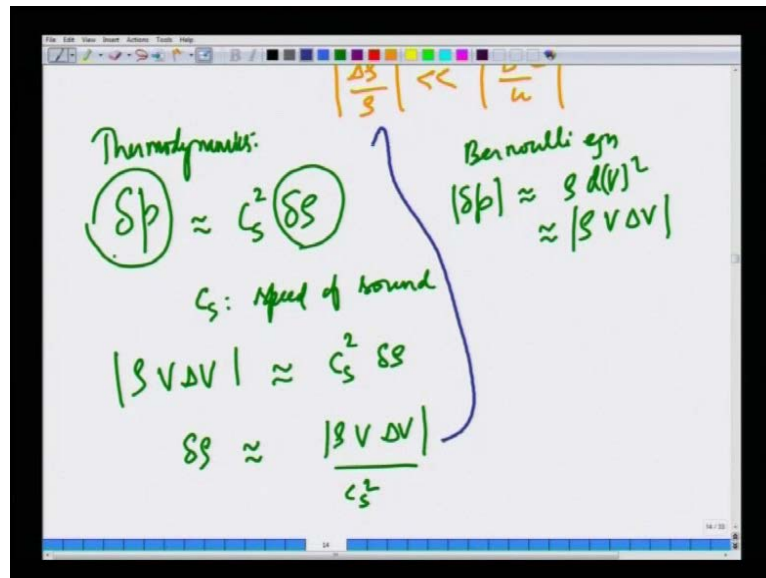 File Edit View Insert Actions Tools Help
|Δρ/ρ| << | /u|
Thermodynamics:
δp ≈ C_s² δρ
C_s: speed of sound
|ρ V ΔV| ≈ C_s² δρ
δρ ≈ |ρ V ΔV| / C_s²
Bernoulli eqn
|δp| ≈ ρ d(V)²
≈ |ρ V ΔV|
14
14 / 33